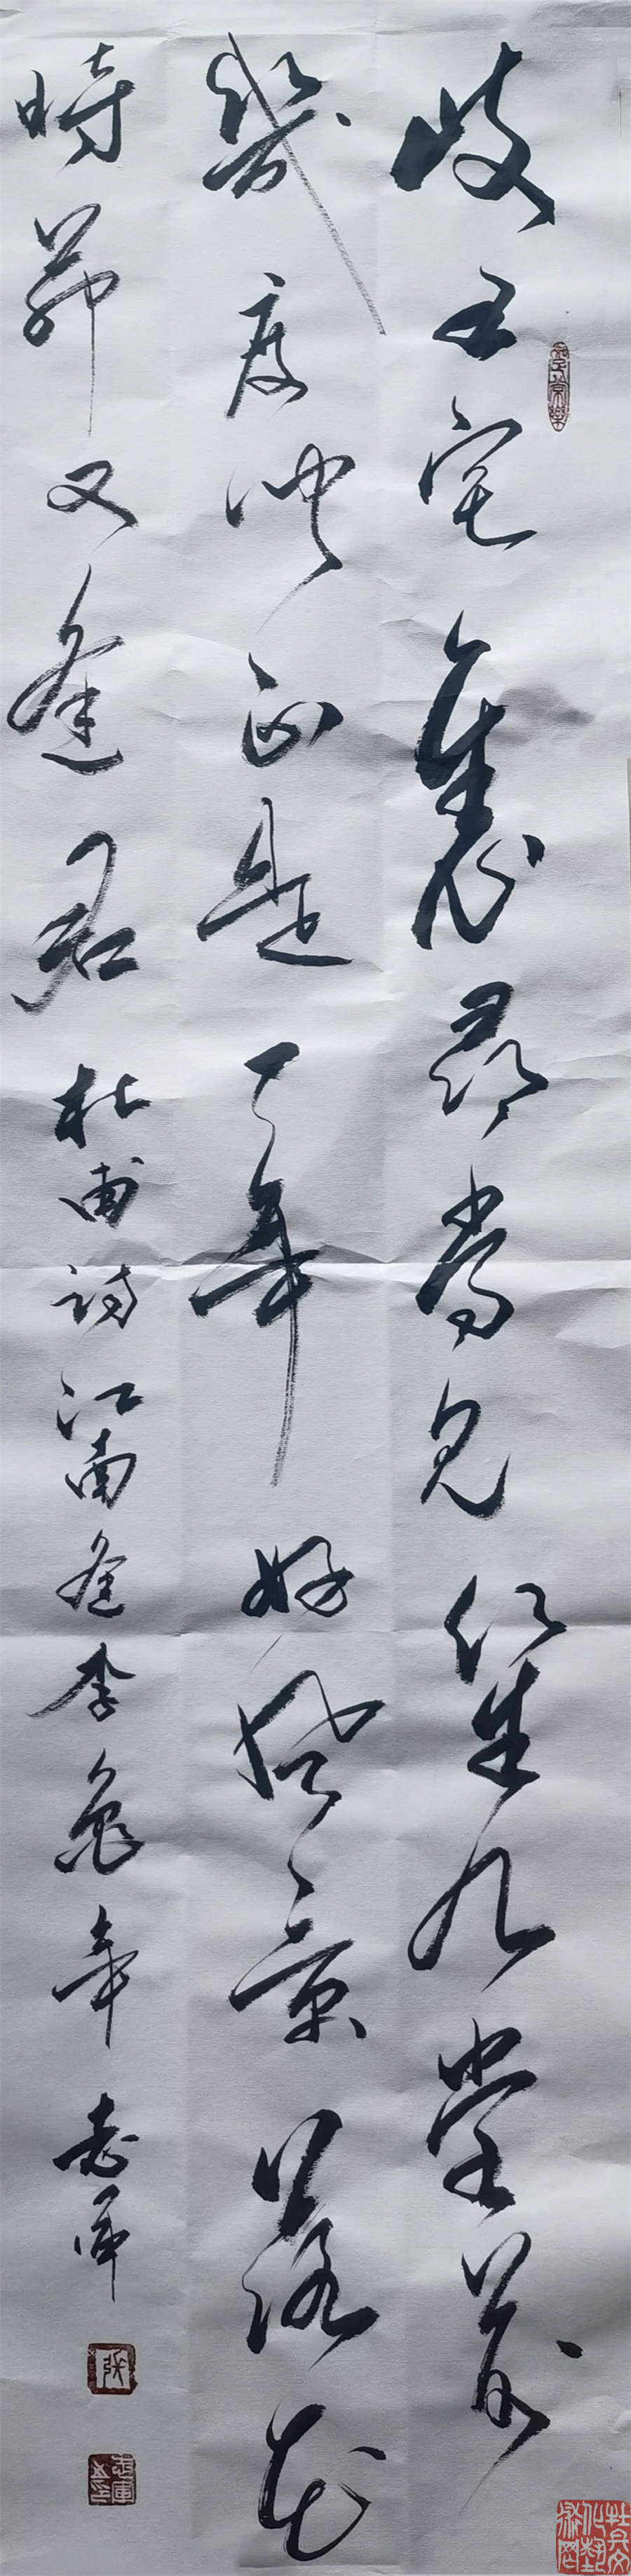 岐王宅裏尋常見崔九堂前
幾度聞正是一年好風景落花
時節又逢君 杜甫詩江南逢李龜年 志軍
張